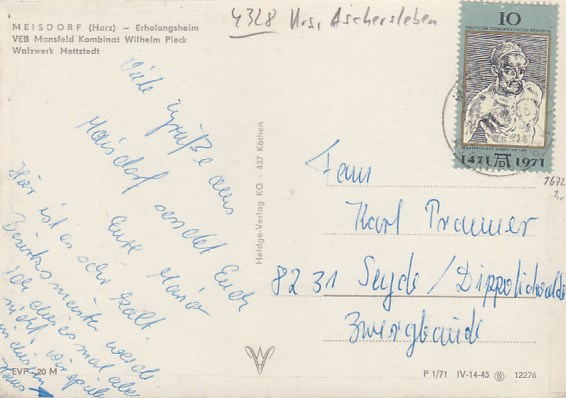 4328 Krs. Aschersleben
MEISDORF (Harz) — Erholungsheim
VEB Mansfeld Kombinat Wilhelm Pieck
Walzwerk Hettstedt
10
DEUTSCHE DEMOKRATISCHE REPUBLIK
1471 1971
1672
Viele Grüße aus
Meisdorf sendet Euch
Eure
Hier ist es sehr kalt
Bezirksmeister werde
ich dies mal aber
nicht
Heldge-Verlag KG · 437 Köthen
Fam
Karl Prammer
8231 Seyde/Dippoldiswalde
Zwergbaude
EVP 20 M
P 1/71 IV-14-45 12276